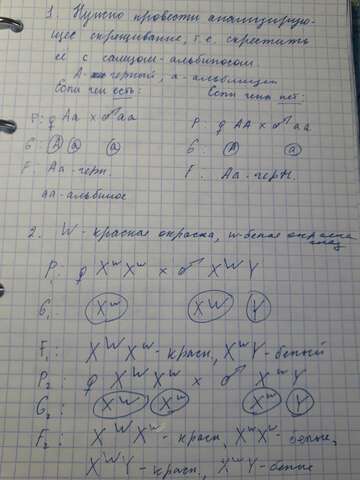 1. Нужно провести анализирую-
щее скрещивание, т.е. скрестить
её с самцом-альбиносом.
А - черный, а - альбинизм
Если ген есть: Если гена нет:
P: ♀ Aa × ♂ aa P: ♀ AA × ♂ aa
G: A a a G: A a
F: Aa - черн. F: Aa - черн.
aa - альбинос
2. W - красная окраска, w - белая окраска
глаз
P₁ ♀ XʷXʷ × ♂ XᵂY
G₁: Xʷ Xᵂ Y
F₁: XᵂXʷ - красн, XʷY - белый
P₂: ♀ XᵂXʷ × ♂ XʷY
G₂ Xᵂ Xʷ Xʷ Y
F₂: XᵂXʷ - красн, XʷXʷ - белые,
XᵂY - красн, XʷY - белые